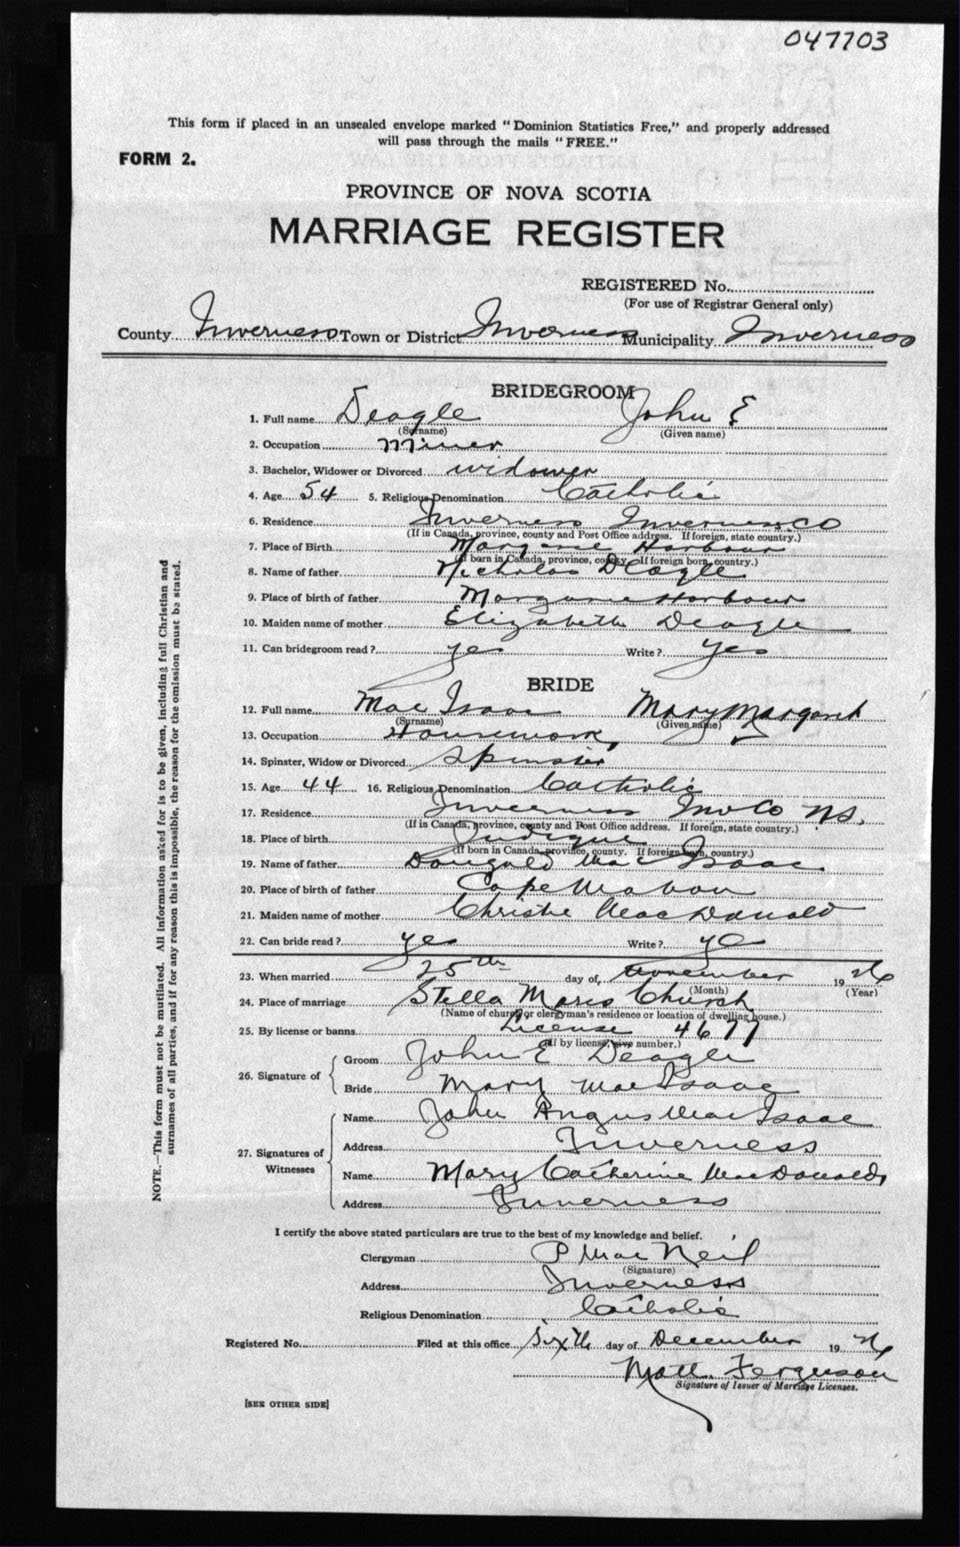 047703
This form if placed in an unsealed envelope marked "Dominion Statistics Free," and properly addressed
will pass through the mails "FREE."
FORM 2.
PROVINCE OF NOVA SCOTIA
MARRIAGE REGISTER
REGISTERED No.
(For use of Registrar General only)
County Inverness Town or District Inverness Municipality Inverness
BRIDEGROOM
1. Full name Deagle John E
(Surname) (Given name)
2. Occupation Miner
3. Bachelor, Widower or Divorced widower
4. Age 54 5. Religious Denomination Catholic
6. Residence Inverness Inverness CO
(If in Canada, province, county and Post Office address. If foreign, state country.)
7. Place of Birth Margaree Harbour
(If born in Canada, province, county. If foreign born, country.)
8. Name of father Nicholas Deagle
9. Place of birth of father Margaree Harbour
10. Maiden name of mother Elizabeth Deagle
11. Can bridegroom read? yes Write? yes
BRIDE
12. Full name Mac Isaac Mary Margaret
(Surname) (Given name)
13. Occupation Housework
14. Spinster, Widow or Divorced Spinster
15. Age 44 16. Religious Denomination Catholic
17. Residence Inverness Inv Co NS.
(If in Canada, province, county and Post Office address. If foreign, state country.)
18. Place of birth Judique
(If born in Canada, province, county. If foreign born, country.)
19. Name of father Dougald Mac Isaac
20. Place of birth of father Cape Mabou
21. Maiden name of mother Christie MacDonald
22. Can bride read? yes Write? yes
23. When married 25th day of November 1926
(Month) (Year)
24. Place of marriage Stella Maris Church
(Name of church or clergyman's residence or location of dwelling house.)
25. By license or banns License 4677
(If by license, give number.)
26. Signature of Groom John E Deagle
Bride Mary MacIsaac
27. Signatures of Witnesses Name John Angus MacIsaac
Address Inverness
Name Mary Catherine MacDonald
Address Inverness
I certify the above stated particulars are true to the best of my knowledge and belief.
Clergyman P MacNeil
(Signature)
Address Inverness
Religious Denomination Catholic
Registered No. Filed at this office Sixth day of December 1926
Ferguson
Signature of Issuer of Marriage Licenses.
[SEE OTHER SIDE]
NOTE.—This form must not be mutilated. All information asked for is to be given, including full Christian and
surnames of all parties, and if for any reason this is impossible, the reason for the omission must be stated.